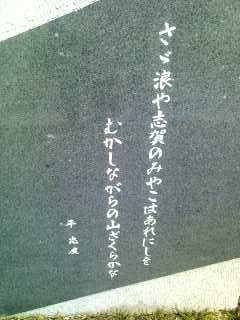 さゞ浪や志賀のみやこはあれにしを
むかしながらの山ざくらかな
平忠度